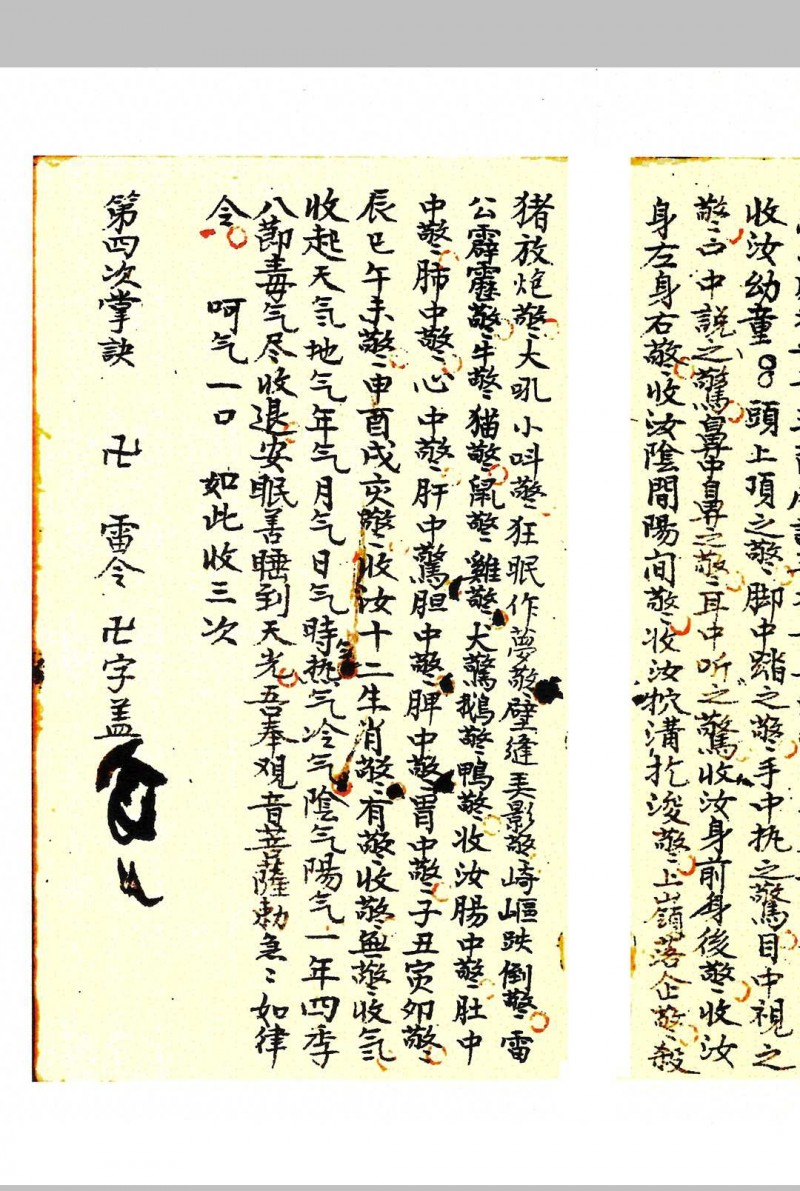 收汝幼童8頭上頂之驚〻脚中踏之驚〻手中执之驚目中視之
驚〻口中說之驚鼻中鼻之驚〻耳中听之驚收汝身前身後驚〻收汝
身左身右驚〻收汝陰間陽间驚〻收汝 溝 驚〻上嶺落企驚〻殺
猪放炮驚〻大吼小呌驚〻狂眠作夢驚〻壁縫 影驚〻崎嶇跌倒驚〻雷
公霹靂驚〻牛驚〻猫驚〻鼠驚〻雞驚〻犬驚鵝驚〻鴨驚〻收汝腸中驚〻肚中
中驚〻肺中驚〻心中驚〻肝中驚胆中驚〻脾中驚〻胃中驚〻子丑寅卯驚〻
辰巳午未驚〻申酉戌亥驚〻收汝十二生肖驚〻有驚〻收驚〻無驚〻收气
收起天气地气年气月气日气時气热气冷气陰气陽气一年四季
八節毒气尽收退安眠善睡到天光吾奉观音菩薩勅急〻如律
令 呵气一口 如此收三次
第四次掌訣 卍 雷令 卍字盖